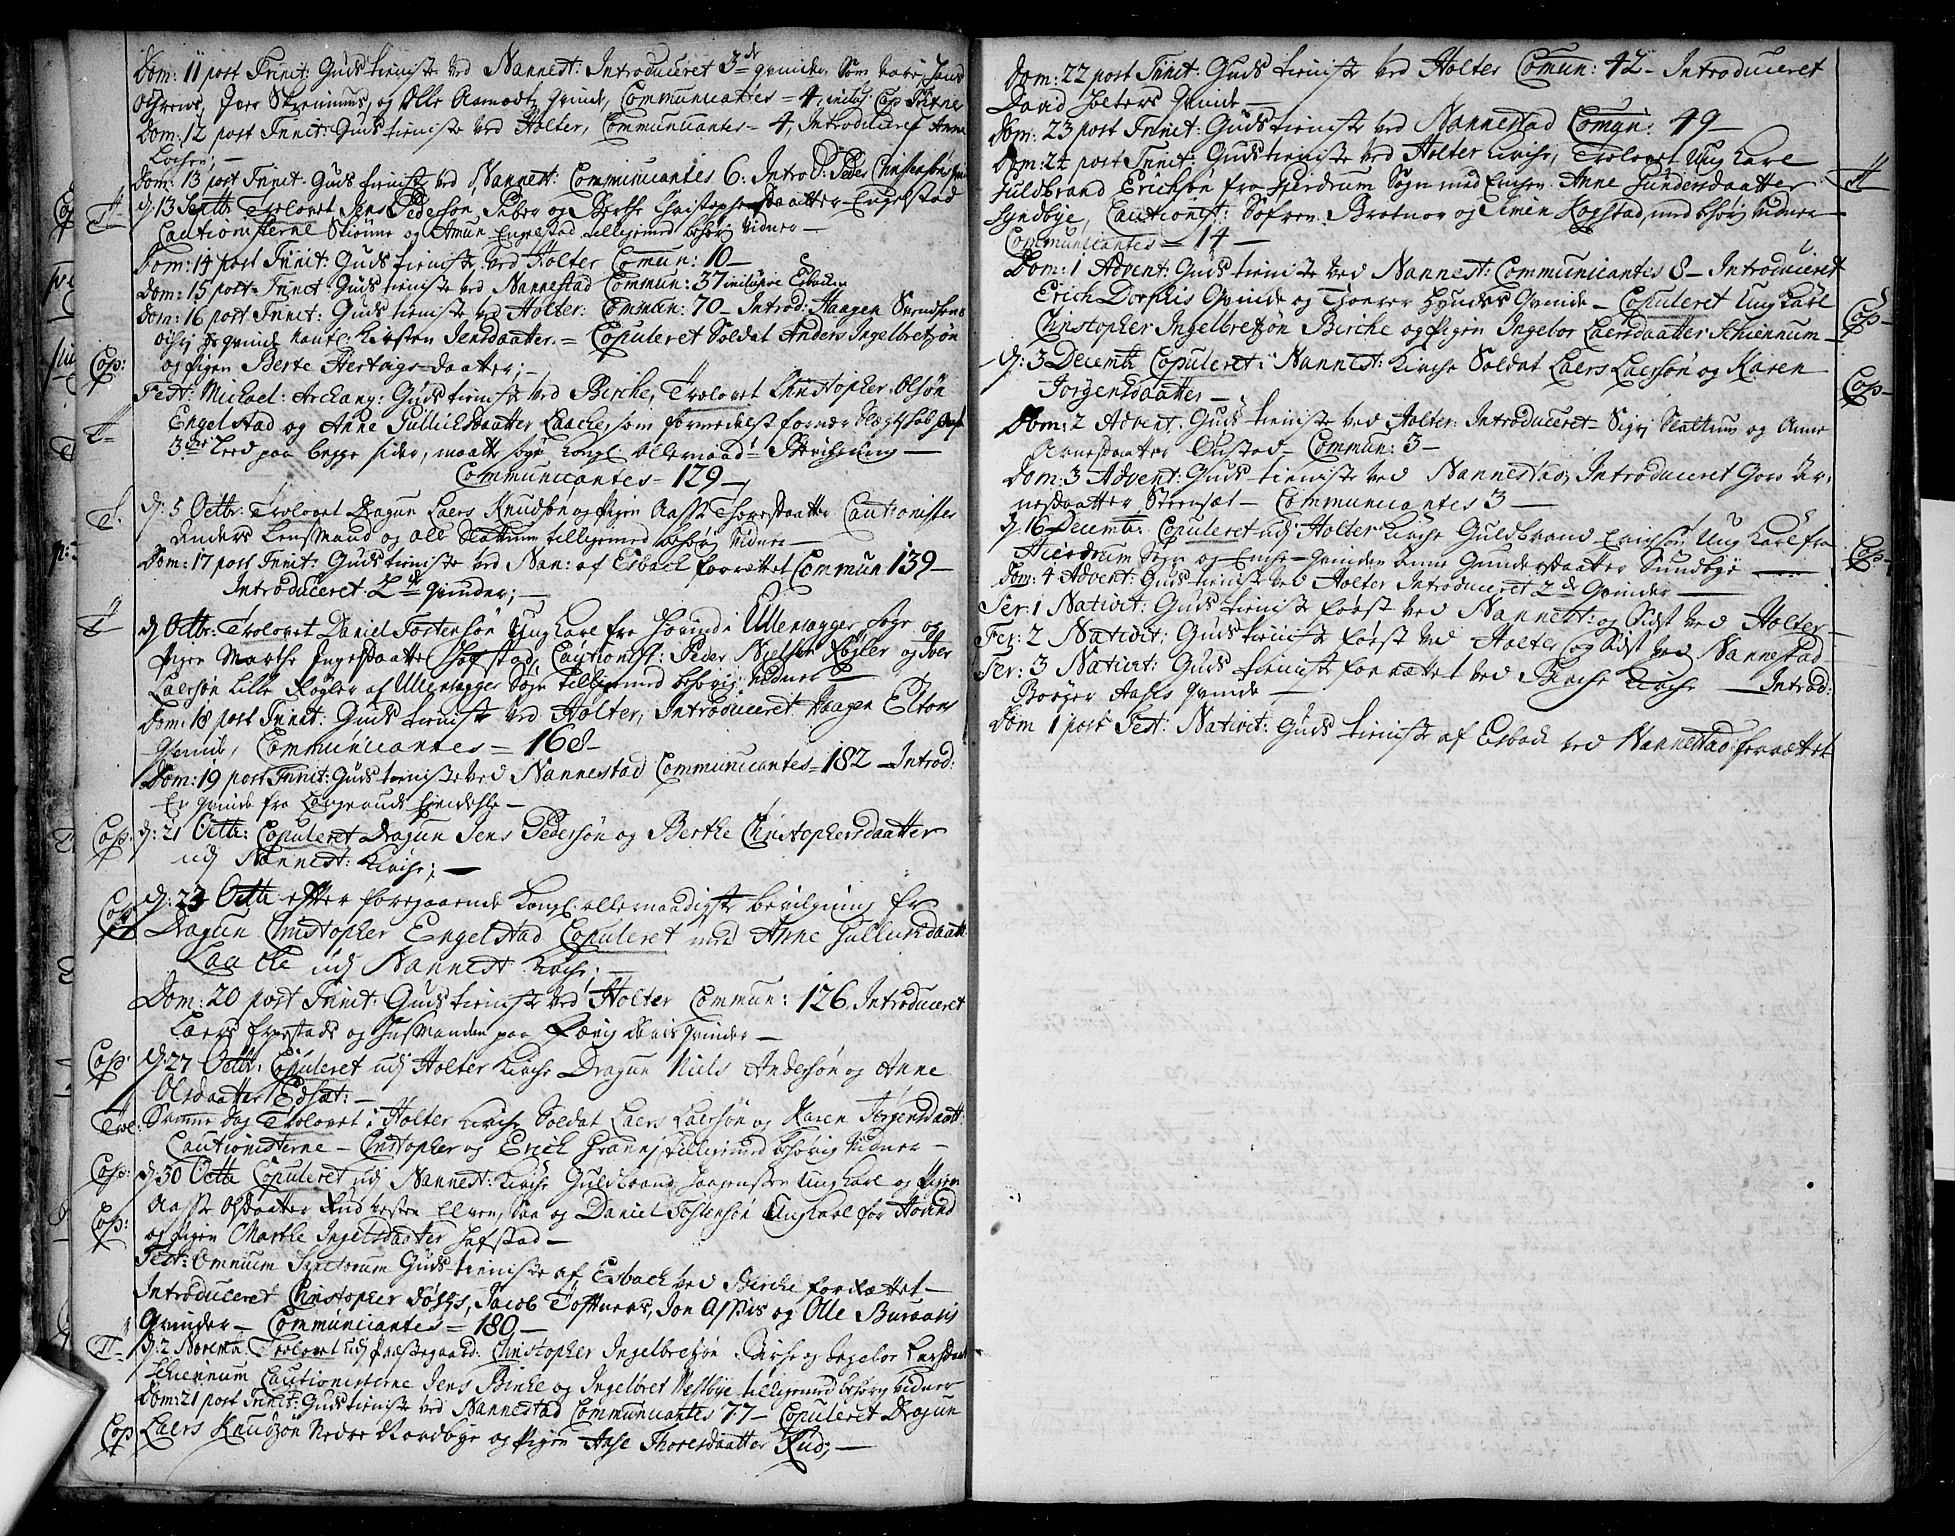 Dom: 11 post Trinit: Guds tieniste ved Nannest: Introduceret 3de qvinder Som vare Hans
Iver Skrenimes, og Olle Aamodtz qvinde, Communicantes = 4, inclus: Cap
Dom: 12 post Trinit: Guds tieniste ved Holter, Communicantes = 4, Introduceret Anne
Dom: 13 post Trinit: Guds tieniste ved Nannest: Communicantes 6. Introd: Peder Christensøns
T
d: 13 Septbr: Trolovet Jens Pederson og Berthe Christophersdaatter Engelstad
Cautionisterne Skionne og Amun Engelstad tilligemed behørig vidner —
Dom: 14 post Trinit: Guds tieniste ved Holter Comun: 10 —
Dom: 15 post Trinit Guds tieniste ved Nannestad Commun: 37 inclusive Esbachen
Dom: 16 post Trinit: Guds tieniste ved Holter: Commun: 70 — Introd: Haagen Svendsens
qvinde Kirsten Jensdaatter = Copuleret Soldat Anders Ingelbretzøn
Cop:
og Pigen Berte Hertvigs-daatter; —
Fest: Michael: Archang: Guds tieniste ved Birche, Trolovet Christopher Olsøn
T=
Engelstad og Anne Gullichsdaatter Laache, som formedelst for nær Slægtskab
3die Leed paa begge sider, maatte søge Kongl Allernaad: Bevilgning —
Communicantes = 129 —
T.
d: 5 Octbr: Trolovet Dragun Laers Knudsøn og Pigen Aasse Thoresdaatter Cautionister
Anders Lensmand og Ole Slattum tilligemed behørig vidner —
Dom: 17 post Trinit: Guds tieniste ved Nan: af Esbach forrættet Commun 139 —
Introduceret 2de qvinder; —
T
d Octbr: Trolovet Daniel Tostensøn Ung Karl fra Hovind i Ullensagger Sogn og
Pigen Marthe Ingelsdaatter Hofstad, Cautionist: Peder Nielsen Røgler og Iver
Laersøn Lille Røgler af Ullensagger Sogn tilligemed behørig vidner —
Dom: 18 post Trinit: Guds tieniste ved Holter, Introduceret Haagen Eltons
qvinde, Communicantes = 168 —
Dom: 19 post Trinit: Guds tieniste ved Nannestad Communicantes = 182 — Introd:
En qvinde fra
Cop:
d: 21 Octb: Copuleret Dragun Jens Pedersøn og Berthe Christophersdaatter
udj Nannest: Kirche; —
Cop
d: 23 Octb efter foregaaende Kongl: allernaadigste bevilgning
Dragun Christopher Engelstad Copuleret med Anne Gullichsdaatt:
Laache udj Nannest Kirche; —
Dom: 20 post Trinit: Guds tieniste ved Holter Commun: 126, Introduceret
Laers og Husmanden paa qvinder —
Cop:
d: 27 Octb: Copuleret udj Holter Kirche Dragun Niels Andersøn og Anne
Olsdaatter Edsæt: —
Trol:
Samme dag Trolovet i Holter Kirche Soldat Laers Laersøn og Karen Jørgensdaatt
Cautionisterne — Christopher og Erich Granni, tilligemed behørig vidner —
Cop:
d: 30 Octb Copuleret udj Nannest: Kirche Guldbrand Haagensen Ung Karl og Pigen
Cop:
Aasse Olsdaatter Rud vesten Elven, Saa og Daniel Tostensøn Ung Karl for Hovind
og Pigen Marthe Ingelsdaatter Hofstad —
Fest: Omnium Sanctorum Guds-tieniste af Esbach ved Birche forrættet —
Introduceret Christopher Døhls, Jacob Toftners, Jon Aspas og Olle Buraasis
Qvinder — Communicantes = 180 —
T=
d: 2 Novemb: Trolovet udj Præstegaard: Christopher Ingelbretzøn Birche og Ingebor Larsdaat
Schiennum Cautionisterne Jens Birche og Ingelbret Nestbye tilligemed behørig vidner
Dom: 21 post Trinit: Guds tieniste ved Nannestad Communicantes 77 — Copuleret Dragun
Cop
Laers Knudzøn Nedre Nordbye og Pigen Aase Thoresdaatter Rud; —
Dom: 22 post Trinit: Guds tieniste ved Holter Comun: 42 — Introduceret
David Holters Qvinde —
Dom: 23 post Trinit: Guds tieniste ved Nannestad Comun: 49 —
Dom: 24 post Trinit: Guds tieniste ved Holter Kirche, Trolovet Ung Karl
T
Guldbrand Erichsøn fra Gierdrum Sogn med Enchen Anne Gundersdaatter
Syndbye, Cautionist: Søfren Brotnor og Simen Kogstad, med behørig vidner —
Communicantes = 14 —
Dom: 1 Advent: Guds tieniste ved Nannest: Communicantes 8 — Introduceret
Erich Dorphis Qvinde og Qvinde — Copuleret Ung Karl
Cop —
Christopher Ingelbretzøn Birche og Pigen Ingebor Laersdaatter Schiennum —
d: 3 Decemb: Copuleret i Nannest: Kirche Soldat Laers Laersøn og Karen
Cop —
Jørgensdaatter —
Dom: 2 Advent: Guds tieniste ved Holter: Introduceret Sigri Slattum og Anne
Arnesdaatter Qustad — Commun: 3 —
Dom: 3 Advent: Guds tieniste ved Nannestad, Introduceret Goro Ar-
nesdaatter Steensæt — Communicantes 3 —
d: 16 Decemb: Copuleret udj Holter Kirche Guldbrand Erichsøn Ung Karl fra
Cop —
Gierdrum Sogn og Enche-qvinden Anne Gundersdaatter Sundbye —
Dom: 4 Advent: Guds tieniste ved Holter Introduceret 2de Qvinder —
Fer: 1 Nativit: Guds tieniste først ved Nannest: og Sidst ved Holter —
Fer: 2 Nativit: Guds tieniste først ved Holter og Sidst ved Nannestad
Fer: 3 Nativit: Guds tieniste forrættet ved Birche Kirche — Introd:
Børger Aases qvinde —
Dom 1 post Fest: Nativit: Guds tieniste af Esbach ved Nannestad forrættet